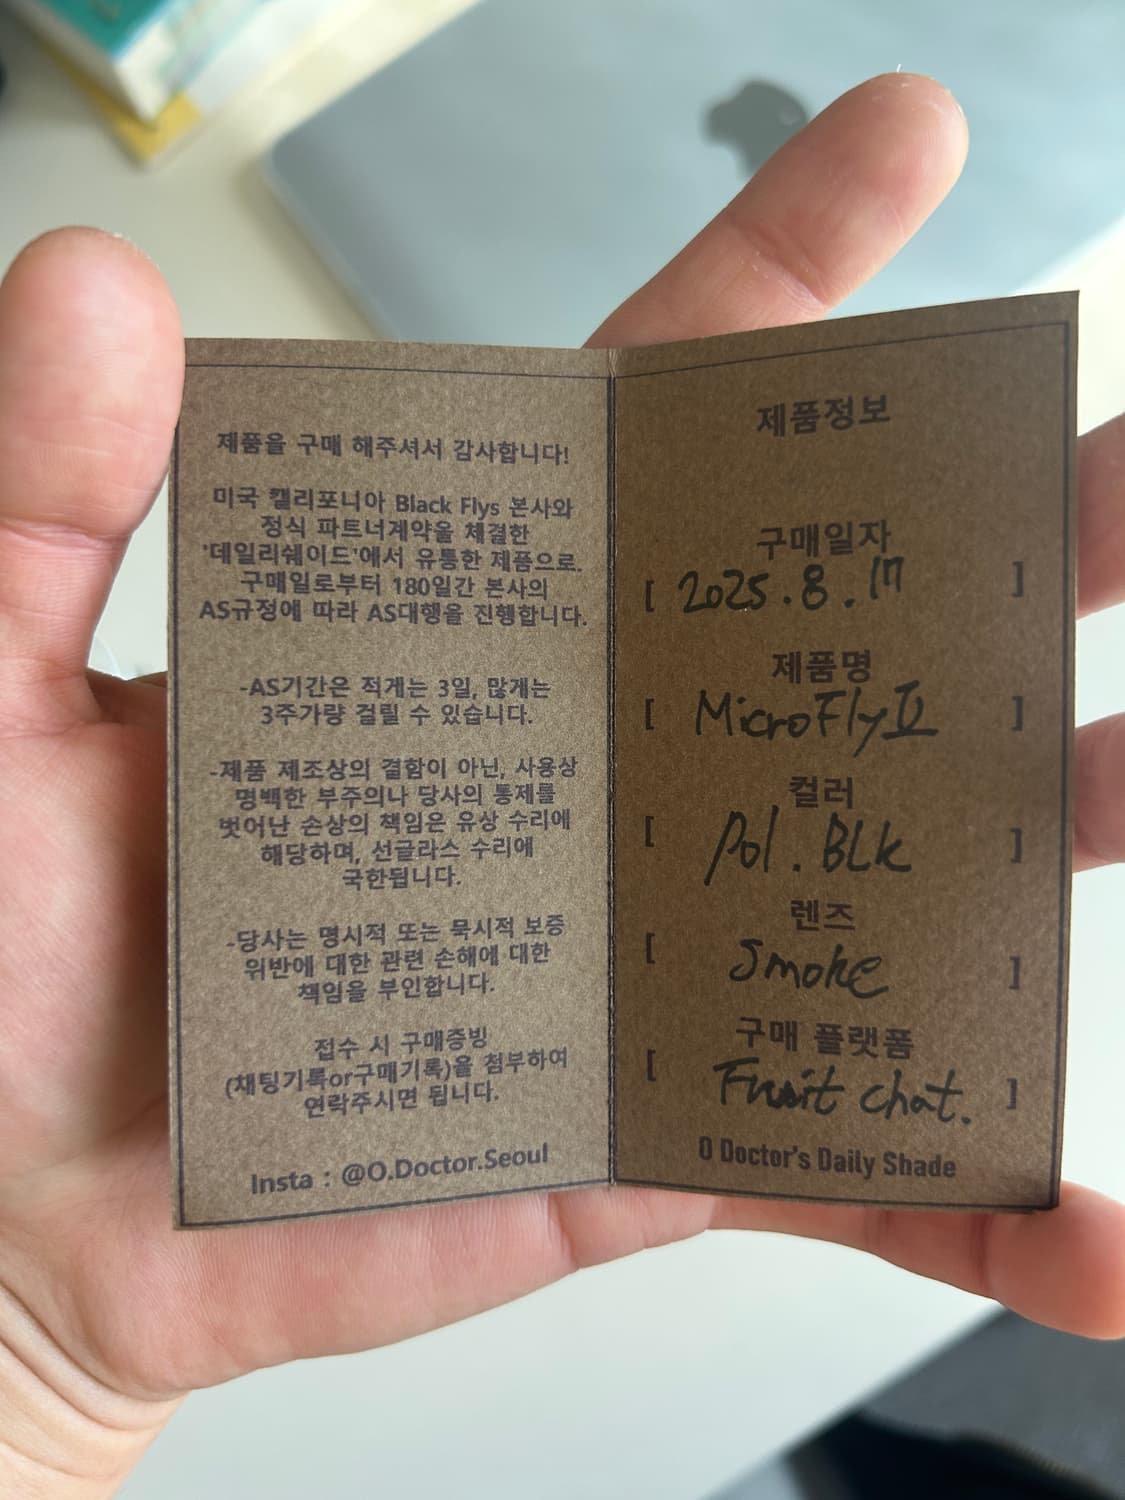 제품을 구매 해주셔서 감사합니다!
미국 캘리포니아 Black Flys 본사와
정식 파트너계약을 체결한
'데일리쉐이드'에서 유통한 제품으로.
구매일로부터 180일간 본사의
AS규정에 따라 AS대행을 진행합니다.
-AS기간은 적게는 3일, 많게는
3주가량 걸릴 수 있습니다.
-제품 제조상의 결함이 아닌, 사용상
명백한 부주의나 당사의 통제를
벗어난 손상의 책임은 유상 수리에
해당하며, 선글라스 수리에
국한됩니다.
-당사는 명시적 또는 묵시적 보증
위반에 대한 관련 손해에 대한
책임을 부인합니다.
접수 시 구매증빙
(채팅기록or구매기록)을 첨부하여
연락주시면 됩니다.
Insta : @O.Doctor.Seoul
제품정보
구매일자
[ 2025.8.17 ]
제품명
[ MicroFly II ]
컬러
[ Pol. BLK ]
렌즈
[ Smoke ]
구매 플랫폼
[ Fruit chat. ]
O Doctor's Daily Shade